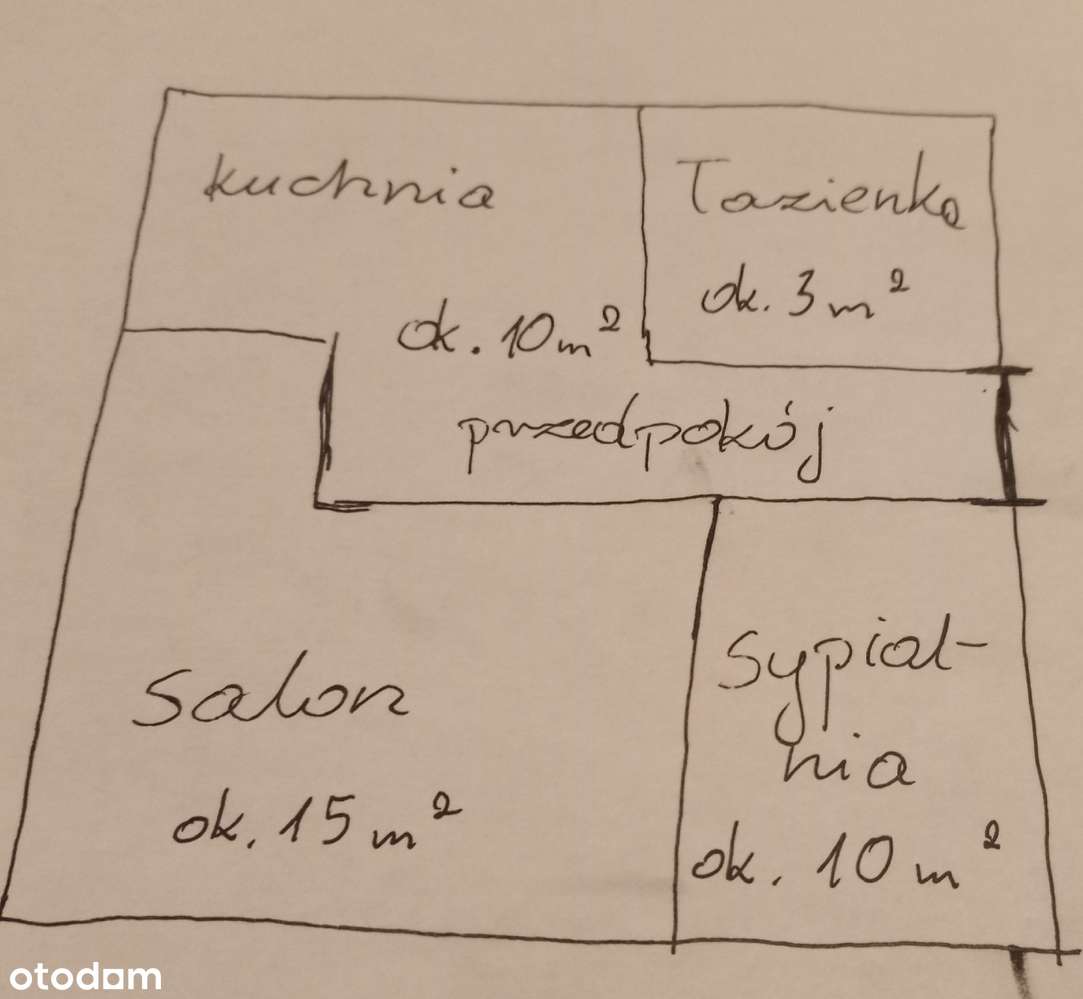 kuchnia
ok. 10 m²
Łazienka
ok. 3 m²
przedpokój
salon
ok. 15 m²
sypial-
nia
ok. 10 m²
otodom